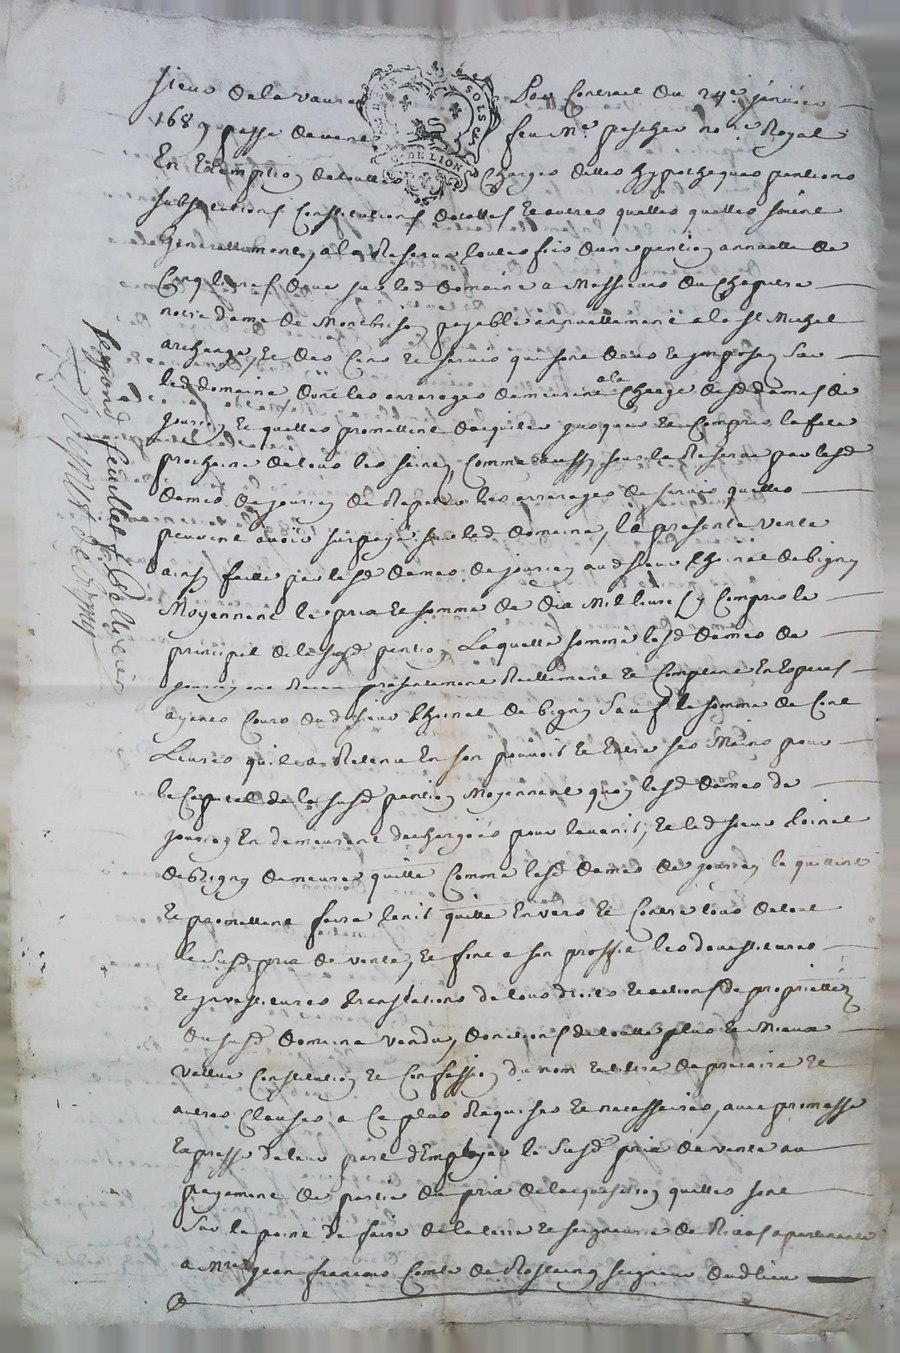 sieur de la vaure Par Contract du 24e janvier
1689 passé devant feu Me peschen no re Royal
En Exemption de touttes Charges dettes hypotheques pentions
substitutions Constitutions dottes et autres quelles quelles soient
Generallement, a la Reserve toutes fois dune pention annuelle de
Cinq livres deue sur led domaine a Messieurs du Chapitre
notre dame de Montbrison payable annuellement a la St Michel
archange, et des Cens et servis qui sont deus et imposés sur
led domaine dont les arrerages demeurent a la Charge desd dames de
jourcey et quelles promettent daquiter jusques et Compris la feste
prochaine de tous les saints, Comme aussy sous la Reserve par lesd
dames de jourcey de Repeter les arrerages de servis quelles
peuvent avoir surpayé sur led domaine, la presente vente
ainsy faitte par lesd dames de jourcey aud sieur de bigny
Moyennant le prix et somme de dix Mil livres y Compris le
principal de la susd pention Laquelle somme lesd dames de
jourcey ont Receu presentement Reellement et Comptant En Especes
ayant Cours dud sieur de bigny Sauf la somme de Cent
Livres quil a Retenu En son pouvoir et Entre ses Mains pour
le Capital de la susd pention Moyennant quoy lesd dames de
jourcey En demeurent dechargées pour lavenir, et led sieur
de bigny demeure quitte Comme lesd dames de jourcey le quittent
et promettent faire tenir quitte Envers et Contre tous de tout
le susd prix de vente, et font a son proffit les devestitures
et investitures translations de tous droits et actions de proprietté
du susd domaine vendu, donations de toutte plus et Mieux
vallue Constitution et Confession du nom et titre de precaire et
autres Clauses a Ce plus Requises et necessaires, avec promesse
Expresse de leur part dEmployer le susd prix de vente au
payement de partie du prix de lacquisition quelles sont
sur le point de faire de la terre et seigneurie de appartenante
a Mre jean francois Comte de Rostaing seigneur dud lieu
segond feuillet
de bigny
SOLS
G. DE LION